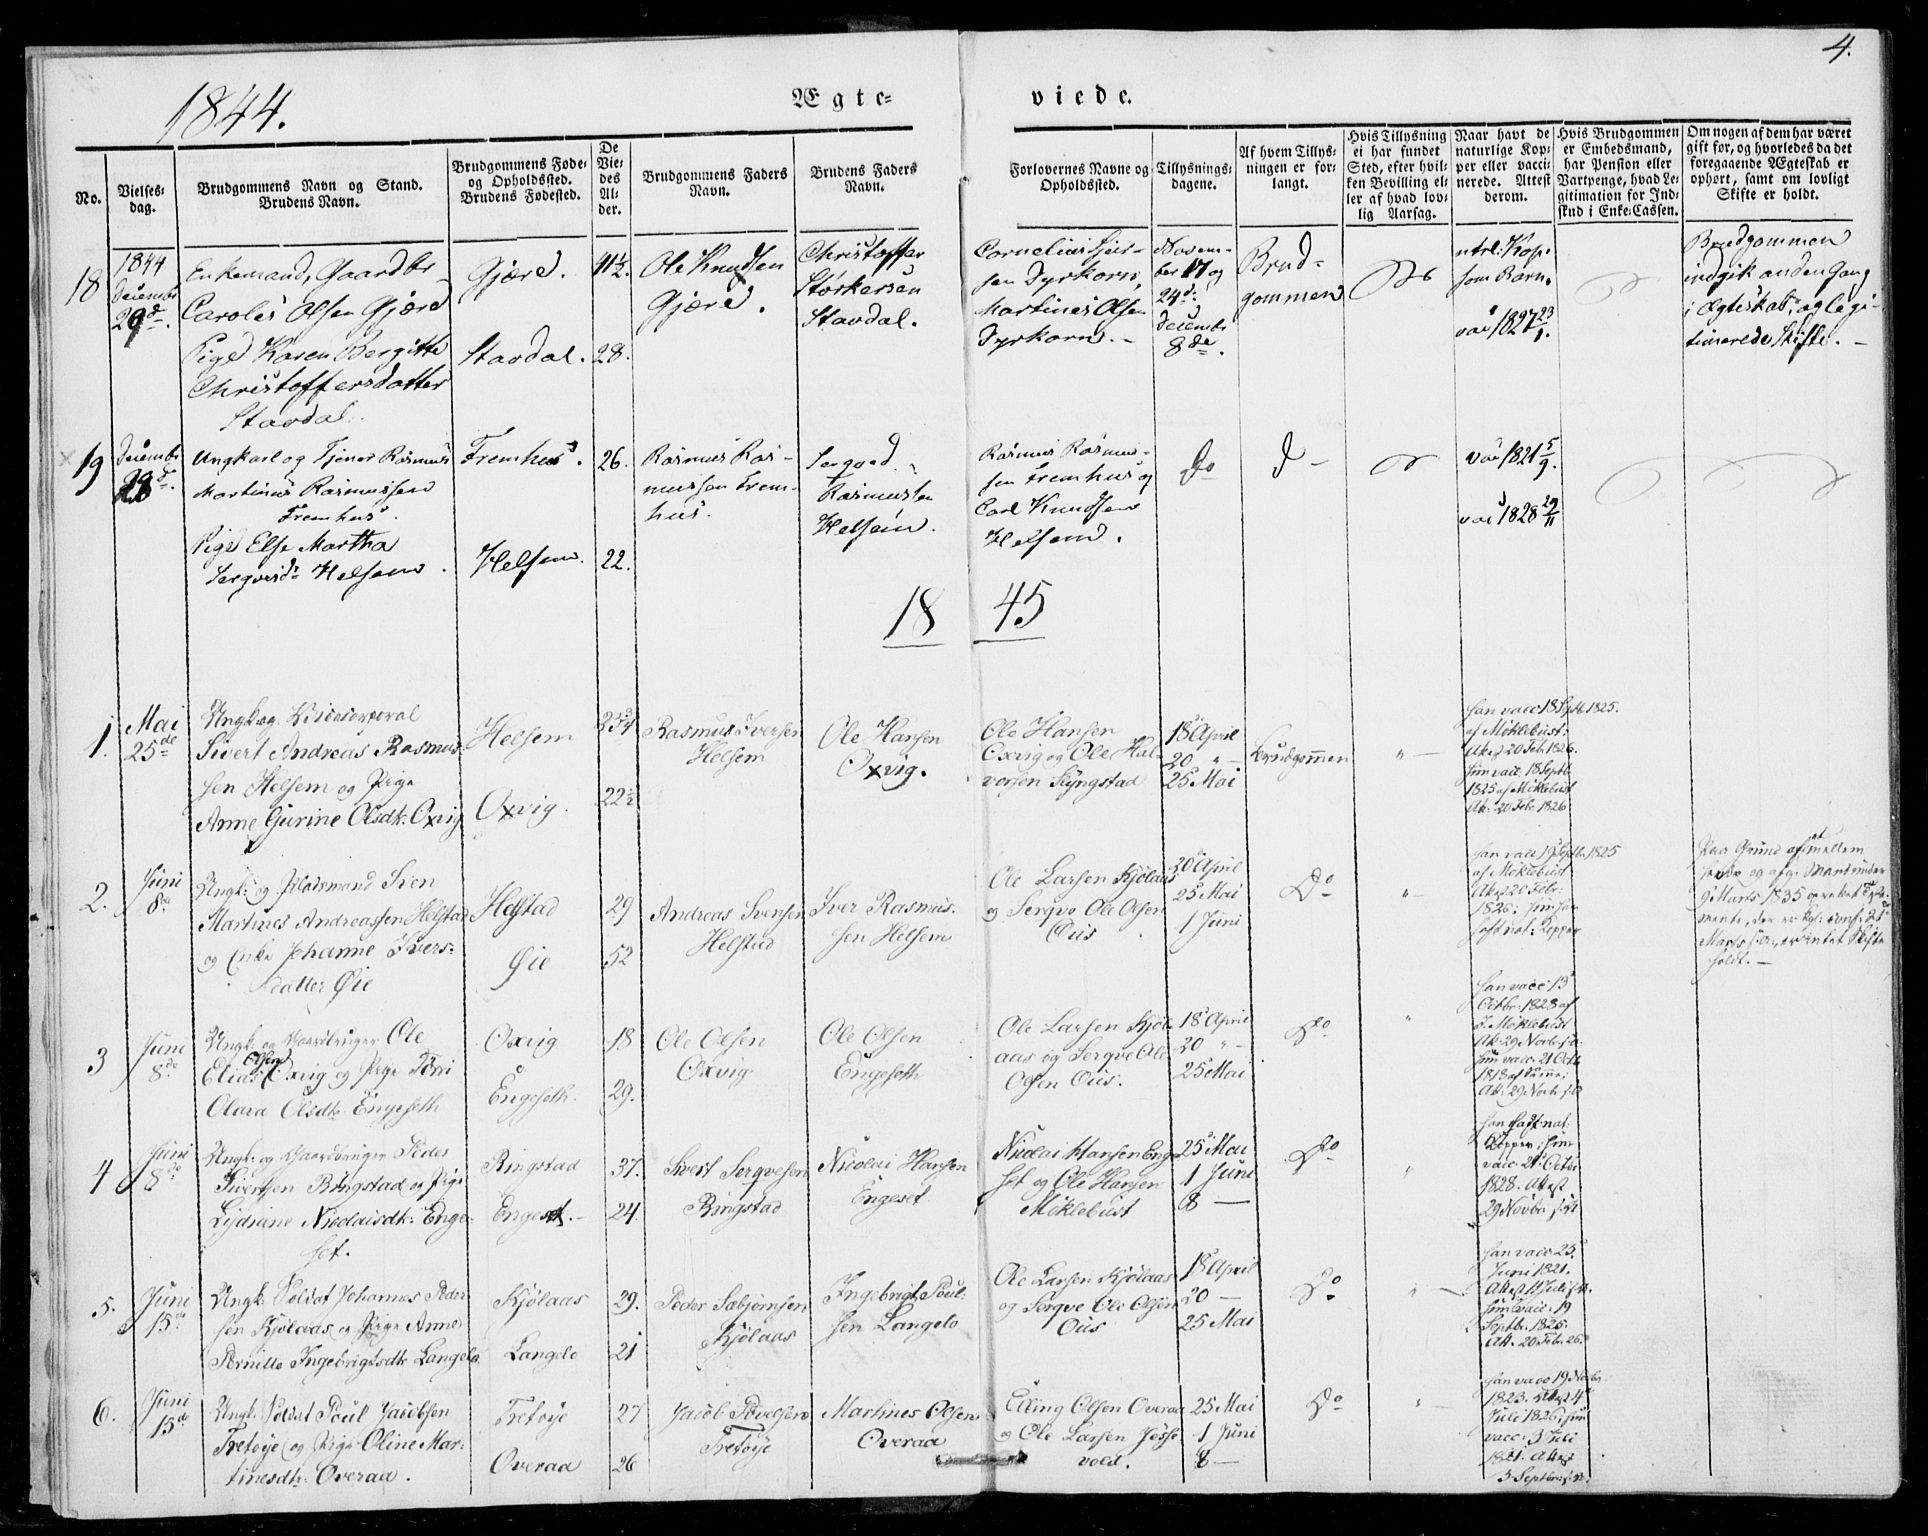 4.
1844.
Ægte=
viede.
No.
Vielses-
dag.
Brudgommens Navn og Stand.
Brudens Navn.
Brudgommens Føde-
og Opholdssted.
Brudens Fødested.
De
Vie-
des
Al-
der.
Brudgommens Faders
Navn.
Brudens Faders
Navn.
Forlovernes Navne og
Opholdssted.
Tillysnings-
dagene.
Af hvem Tillys-
ningen er for-
langt.
Hvis Tillysning
ei har fundet
Sted, efter hvil-
ken Bevilling el-
ler af hvad lov-
lig Aarsag.
Naar havt de
naturlige Kop-
per eller vacci-
nerede. Attest
derom.
Hvis Brudgommen
er Embedsmand,
har Pension eller
Vartpenge, hvad Le-
gitimation for Ind-
skud i Enke-Cassen.
Om nogen af dem har været
gift før, og hvorledes da det
foregaaende Ægteskab er
ophørt, samt om lovligt
Skifte er holdt.
18
1844
Decembr
29d.
Enkemand, Gaardbr
Carolus Olsen Gjære
Pige Karen Bergitte
Christoffersdatter
Stavdal.
Gjære.
Stavdal.
41½.
28.
Ole Knudsen
Gjære.
Christoffer
Størkersen
Stavdal.
Cornelius
sen Dyrkorn,
Martinus Olsen
Dyrkorn.
Novem-
ber 17 og
24d:
Decembr
8de.
Brud-
gommen
ntrl. Kop.
som Barn.
vac 1827 23/9.
Brudgommen
indgik anden Gang
i Ægteskab, og legi-
timerede Skifte.
19
Decembr
Ungkarl og Tjener Rasmus
Martinus Rasmussen
Fremhus.
Pige Else Martha
Serqvesd: Helsem.
Fremhus.
Helsem.
26.
22.
Rasmus Ras-
mussen Frem-
hus.
Serqved
Rasmussen
Helsem.
Rasmus Rasmus-
sen Fremhus og
Carl Knudsen
Helsem.
Do
vac 1821 5/9.
vac 1828 29/11
18 45
1.
Mai
25de
Ungk. og Vicecorporal
Sivert Andreas Rasmus-
sen Helsem og Pige
Anne Gurine Olsdt: Oxvig
Helsem
Oxvig.
25¾
22½
Rasmus Iversen
Helsem
Ole Hansen
Oxvig.
Ole Hansen
Oxvig og Ole Hal-
vorsen Slyngstad
18 April
20 " —
25 Mai
Brudgommen
"
han vacc 18 Septb. 1825.
af Möklebust:
Attest 20 Feb. 1826.
hun vacc. 18 Septb:
1825 af Möklebust
At: 20 Feb. 1826
2.
Juni
8de
Ungk: og Pladsmand Sven
Martines Andreassen Helstad
og Enke Johanne Ivers-
datter Øie
Helstad
Øie
29
52
Andreas Svensen
Helstad
Iver Rasmus-
sen Helsem
Ole Larsen Kjölaas
og Serqve Ole Olsen
Ous
20 April
25 Mai
1 Juni
Do
"
han vacc 19 Septb. 1825
af Möklebust
Attest 20 Feb:
1826; hun har
haft nat: Kopper
9 Marts 1835 oprettet Testa-
mente, der er Kgl: conf: 2de
Marts s: A:, er intet Skifte
holdt. —
3
Juni
8de
Ungk: og Gaardbruger Ole
Elias Olsen Oxvig og Pige Berri
Olava Olsdtr: Engeseth
Oxvig
Engeseth.
18
29.
Ole Olsen
Oxvig
Ole Olsen
Engeseth
Ole Larsen Kjöl-
aas og Serqve Ole
Olsen Ous.
18 April
20 " —
25 Mai
Do
"
han vacc: 13
Octbr: 1828 af
J. Möklebust
At: 29 Novb: s: A:
hun vacc: 21 Octb
1818 af samme;
Att: 29 Novb: s: A:
4
Juni
8de
Ungk: og Gaardbruger Peder
Sivertsen Ringstad og Pige
Lydiane Nicolaisdt: Enge-
set.
Ringstad
Engeset.
37.
24.
Sivert Serqvesen
Ringstad
Nicolai Hansen
Engeset
Nicolai Hansen Enge-
set og Ole Hansen
Möklebust
25 Mai
1 Juni
8 —
Do
"
han havt nat:
Kopper; hun
vacc: 21 Octbr
1828. Attest
29 Novbr s: A:
5.
Juni
15de
Ungk: Soldat Johannes Peder-
sen Kjölaas og Pige Anne
Pernille Ingebrigtsdt: Langelo
Kjölaas
Langelo
29.
21
Peder Sæbjörnsen
Kjölaas
Ingebrigt Poul-
sen Langelo
Ole Larsen Kjölaas
og Serqve Ole Olsen
Ous
18 April
20 —
25 Mai
Do
"
han vacc: 25
Juni 1821.
Attest 11 Juli s: A:
hun vacc: 19
Septbr: 1825.
Att. 20 Feb: 26.
6.
Juni
15de
Ungk: Soldat Poul Jacobsen
Tretöye og Pige Oline Mar-
tinesdt: Overaa.
Tretöye
Overaa
27
26
Jacob Povelsen
Tretöye
Martines Olsen
Overaa
Elling Olsen Overaa
og Ole Larsen Jösse-
vold.
25 Mai
1 Juni
8 —
Do
"
han vacc: 19 Novbr:
1823. Attest 4
Juli 1826; hun
vacc: 3 Juli
1821. Attest
3 Septbr: s: A: